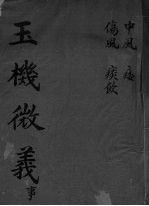 中風 痿
傷風 痰飲
玉機微義
事